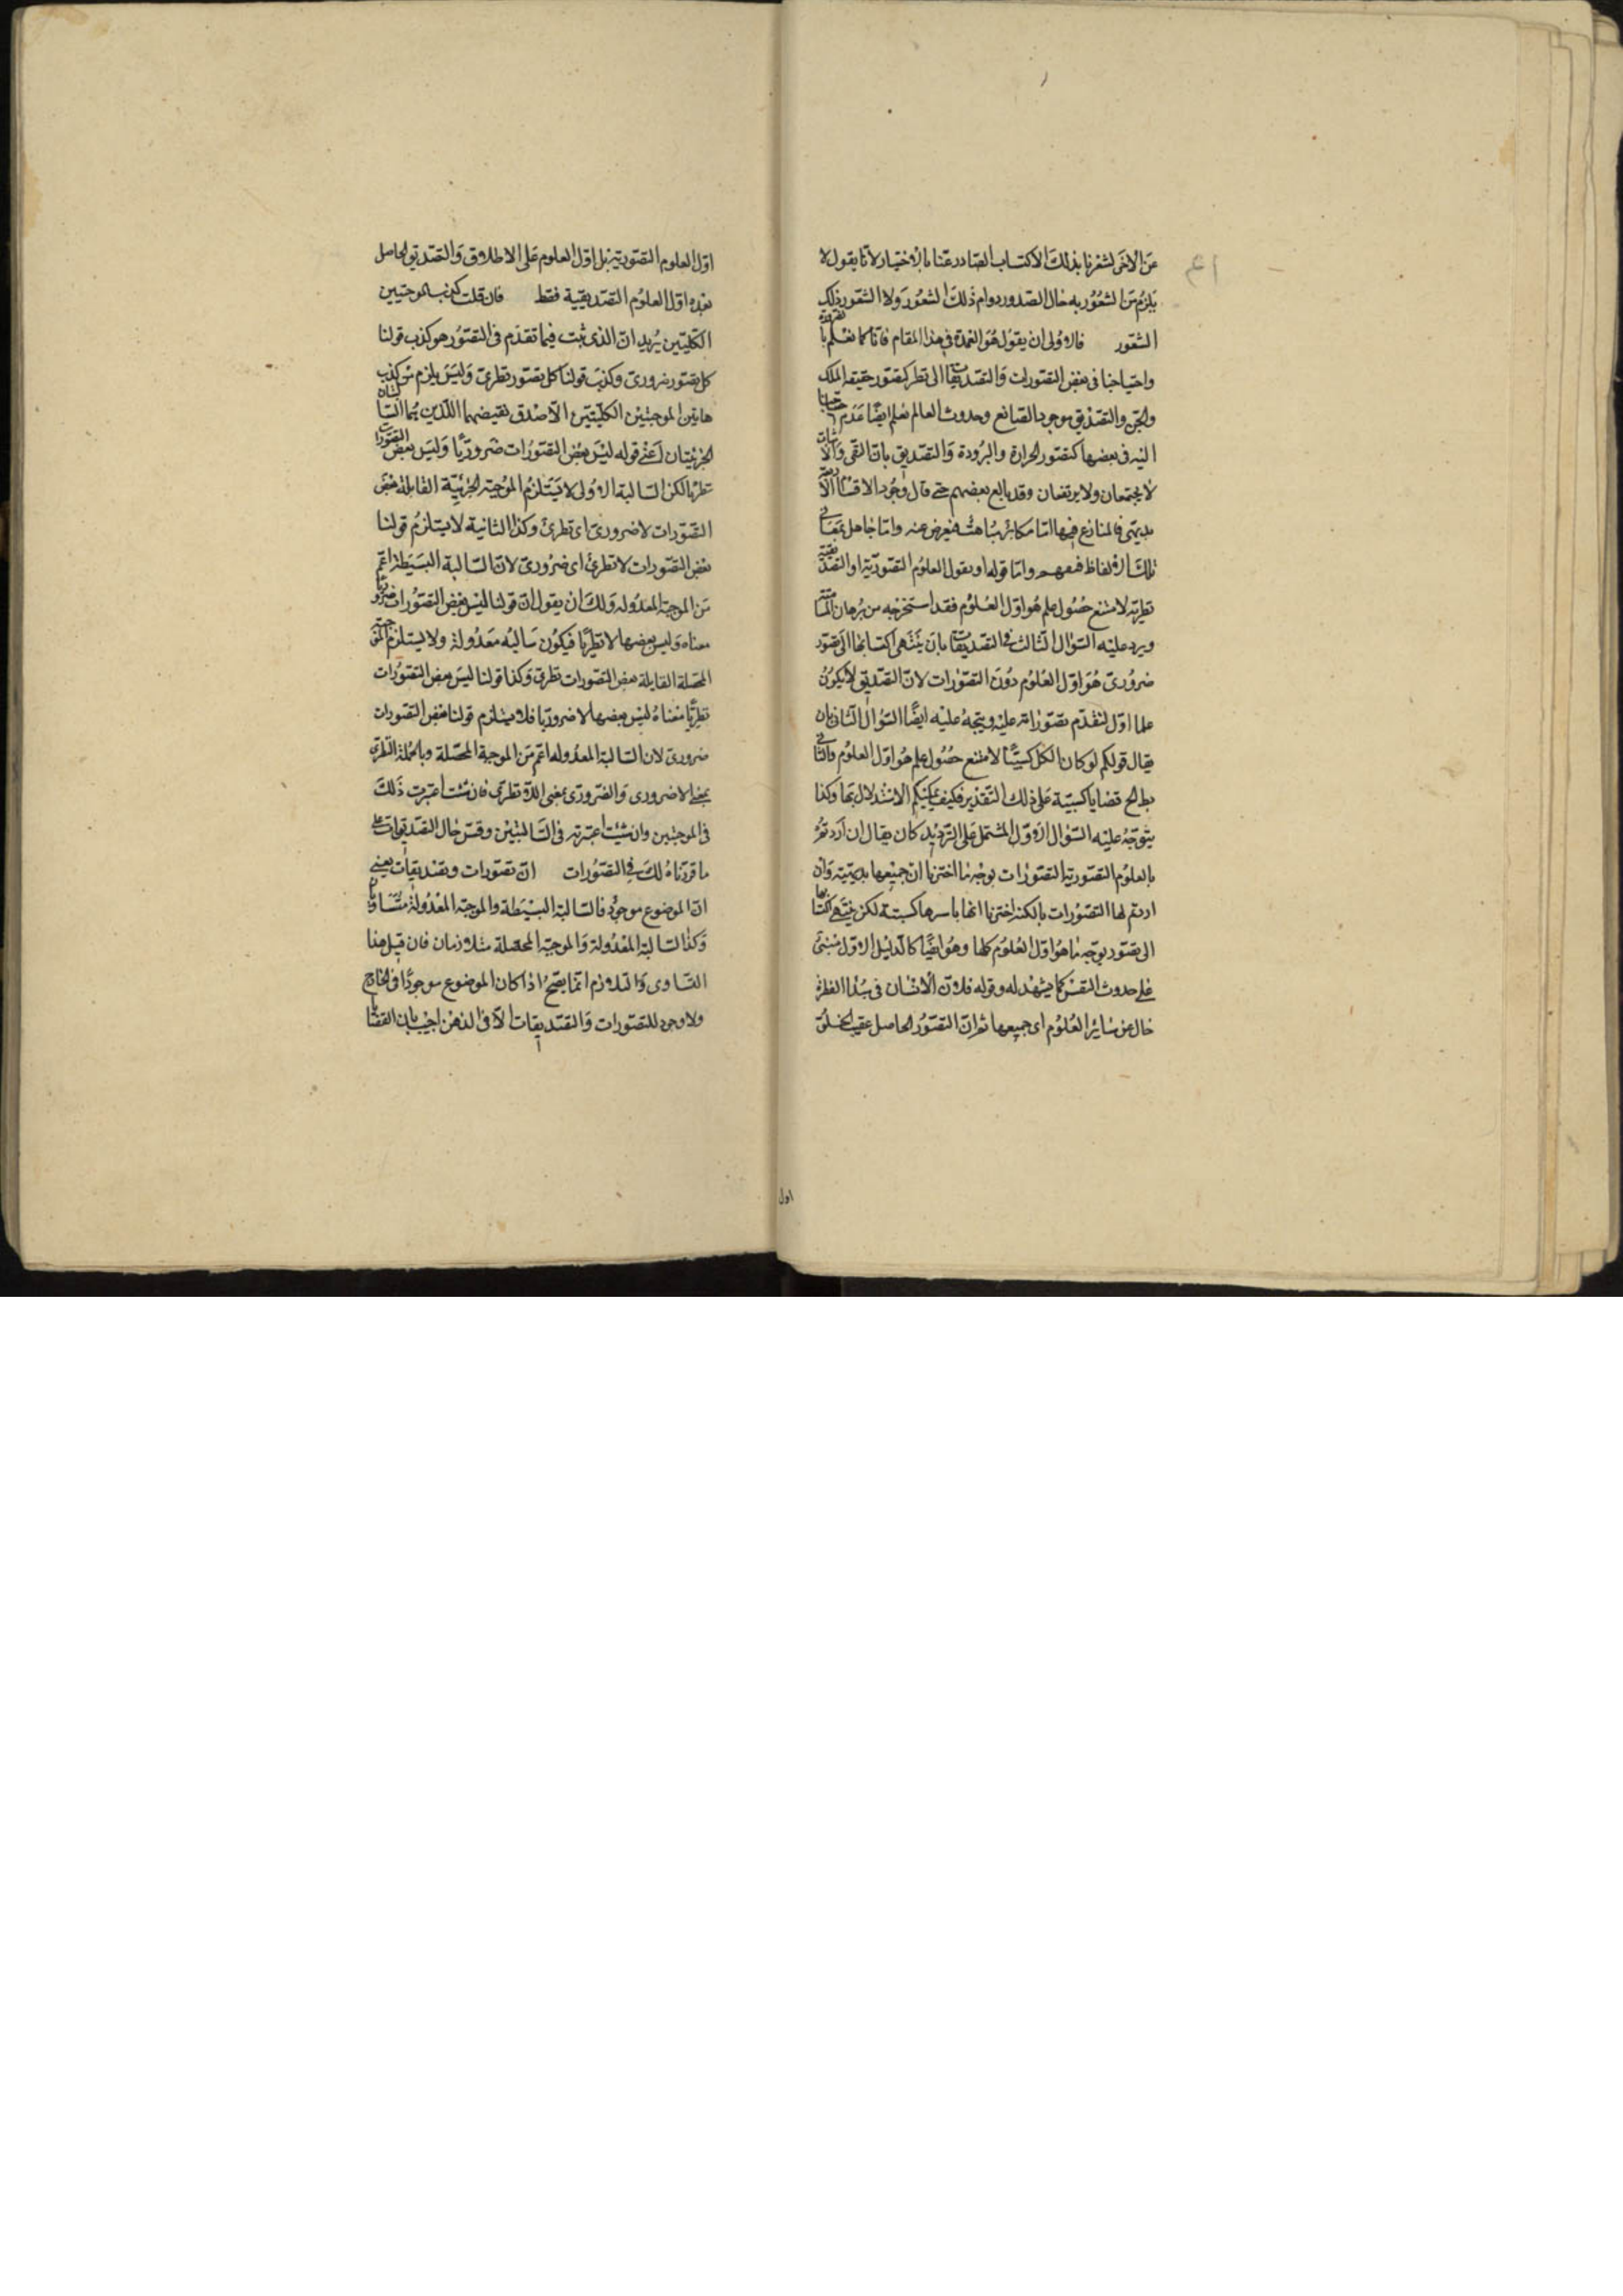 عن الاخر لشعرنا بذلك الاكتساب الصادر عنا بالاختيار لانا نقول لا
يلزم من الشعور به حال الصدور دوام ذلك الشعور ولا الشعور بذلك
الشعور فالاولى ان يقول هو العمدة في هذا المقام فانا كما نعلم بالضرورة
واحتياجنا في بعض التصورات والتصديقات الى نظر كتصور حقيقة الملك
والجن والتصديق بوجود الصانع وحدوث العالم نعلم ايضا عدم احتياجنا
اليه في بعضها كتصور الحرارة والبرودة والتصديق بان النفي والاثبات
لا يجتمعان ولا يرتفعان وقد بالغ بعضهم حتى قال وجود الاقسام الاربعة
بديهي فالمنازع فيها اما مكابر مباهت فيعرض عنه واما جاهل بمعاني
تلك الالفاظ فيفهم واما قوله او نقول العلوم التصورية او التصديقية
نظرية لامتنع حصول علم هو اول العلوم فقد استخرجه من برهان
ويرد عليه السؤال الثالث في التصديقات بان ينتهى اكتسابها الى تصور
ضروري هو اول العلوم دون التصورات لان التصديق لا يكون
علما اول لتقدم تصوراته عليه ويتجه عليه ايضا السؤال الثاني بان
يقال قولكم لو كان الكل كسبيا لامتنع حصول علم هو اول العلوم والتالي
بط الخ قضايا كسبية على ذلك التقدير فكيف يمكنكم الاستدلال بها وكذا
يتوجه عليه السؤال الاول المشتمل على الترديد كان يقال ان اردتم
بالعلوم التصورية التصورات بوجه ما اخترنا ان جميعها بديهية وان
اردتم لها التصورات بالكنه اخترنا انها باسرها كسبية لكن ينتهي اكتسابها
الى تصور بوجه ما هو اول العلوم كلها وهو ايضا كالدليل الاول مبني
على حدوث النفس كما يشهد له وقوله فلان الانسان في مبدا الفطرة
خال عن سائر العلوم اى جميعها ثم ان التصور الحاصل عقيب الخلو
اول
اول العلوم التصورية بل اول العلوم على الاطلاق والتصديق الحاصل
بعده اول العلوم التصديقية فقط فان قلت كذب الموجبتين
الكليتين يريد ان الذى ثبت فيما تقدم في التصور هو كذب قولنا
كل تصور ضروري وكذب قولنا كل تصور نظري وليس يلزم من كذب
هاتين الموجبتين الكليتين الا صدق نقيضهما اللذين هما السالبتان
الجزئيتان اعني قوله ليس بعض التصورات ضروريا وليس بعض التصورات
نظريا لكن السالبة الاولى لا يستلزم الموجبة الجزئية القائلة بعض
التصورات لا ضروري اى نظري وكذا الثانية لا يستلزم قولنا
بعض التصورات لا نظري اى ضروري لان السالبة البسيطة اعم
من الموجبة المعدوله ولك ان يقول ان قولنا ليس بعض التصورات ضروريا
معناه وليس بعضها لا نظريا فيكون سالبه معدولة ولا يستلزم الموجبة
المحصلة القايلة بعض التصورات نظري وكذا قولنا ليس بعض التصورات
نظريا معناه ليس بعضها لا ضروريا فلا يستلزم قولنا بعض التصورات
ضروري لان السالبة المعدوله اعم من الموجبة المحصلة وبالجملة النظري
بمعنى لا ضروري والضروري بمعنى اللا نظري فان شئت اعتبرت ذلك
في الموجبتين وان شئت اعتبرته في السالبتين وقس حال التصديقات على
ما قررناه لك في التصورات ان تصورات وتصديقات يعني
ان الموضوع موجود فالسالبة البسيطة والموجبة المعدولة متساويان
وكذا السالبة المعدولة والموجبة المحصلة متلازمان فان قيل هذا
التساوى والتلازم انما يصح اذا كان الموضوع موجودا في الخارج
ولا وجود للتصورات والتصديقات الا في الذهن اجيب بان القضايا